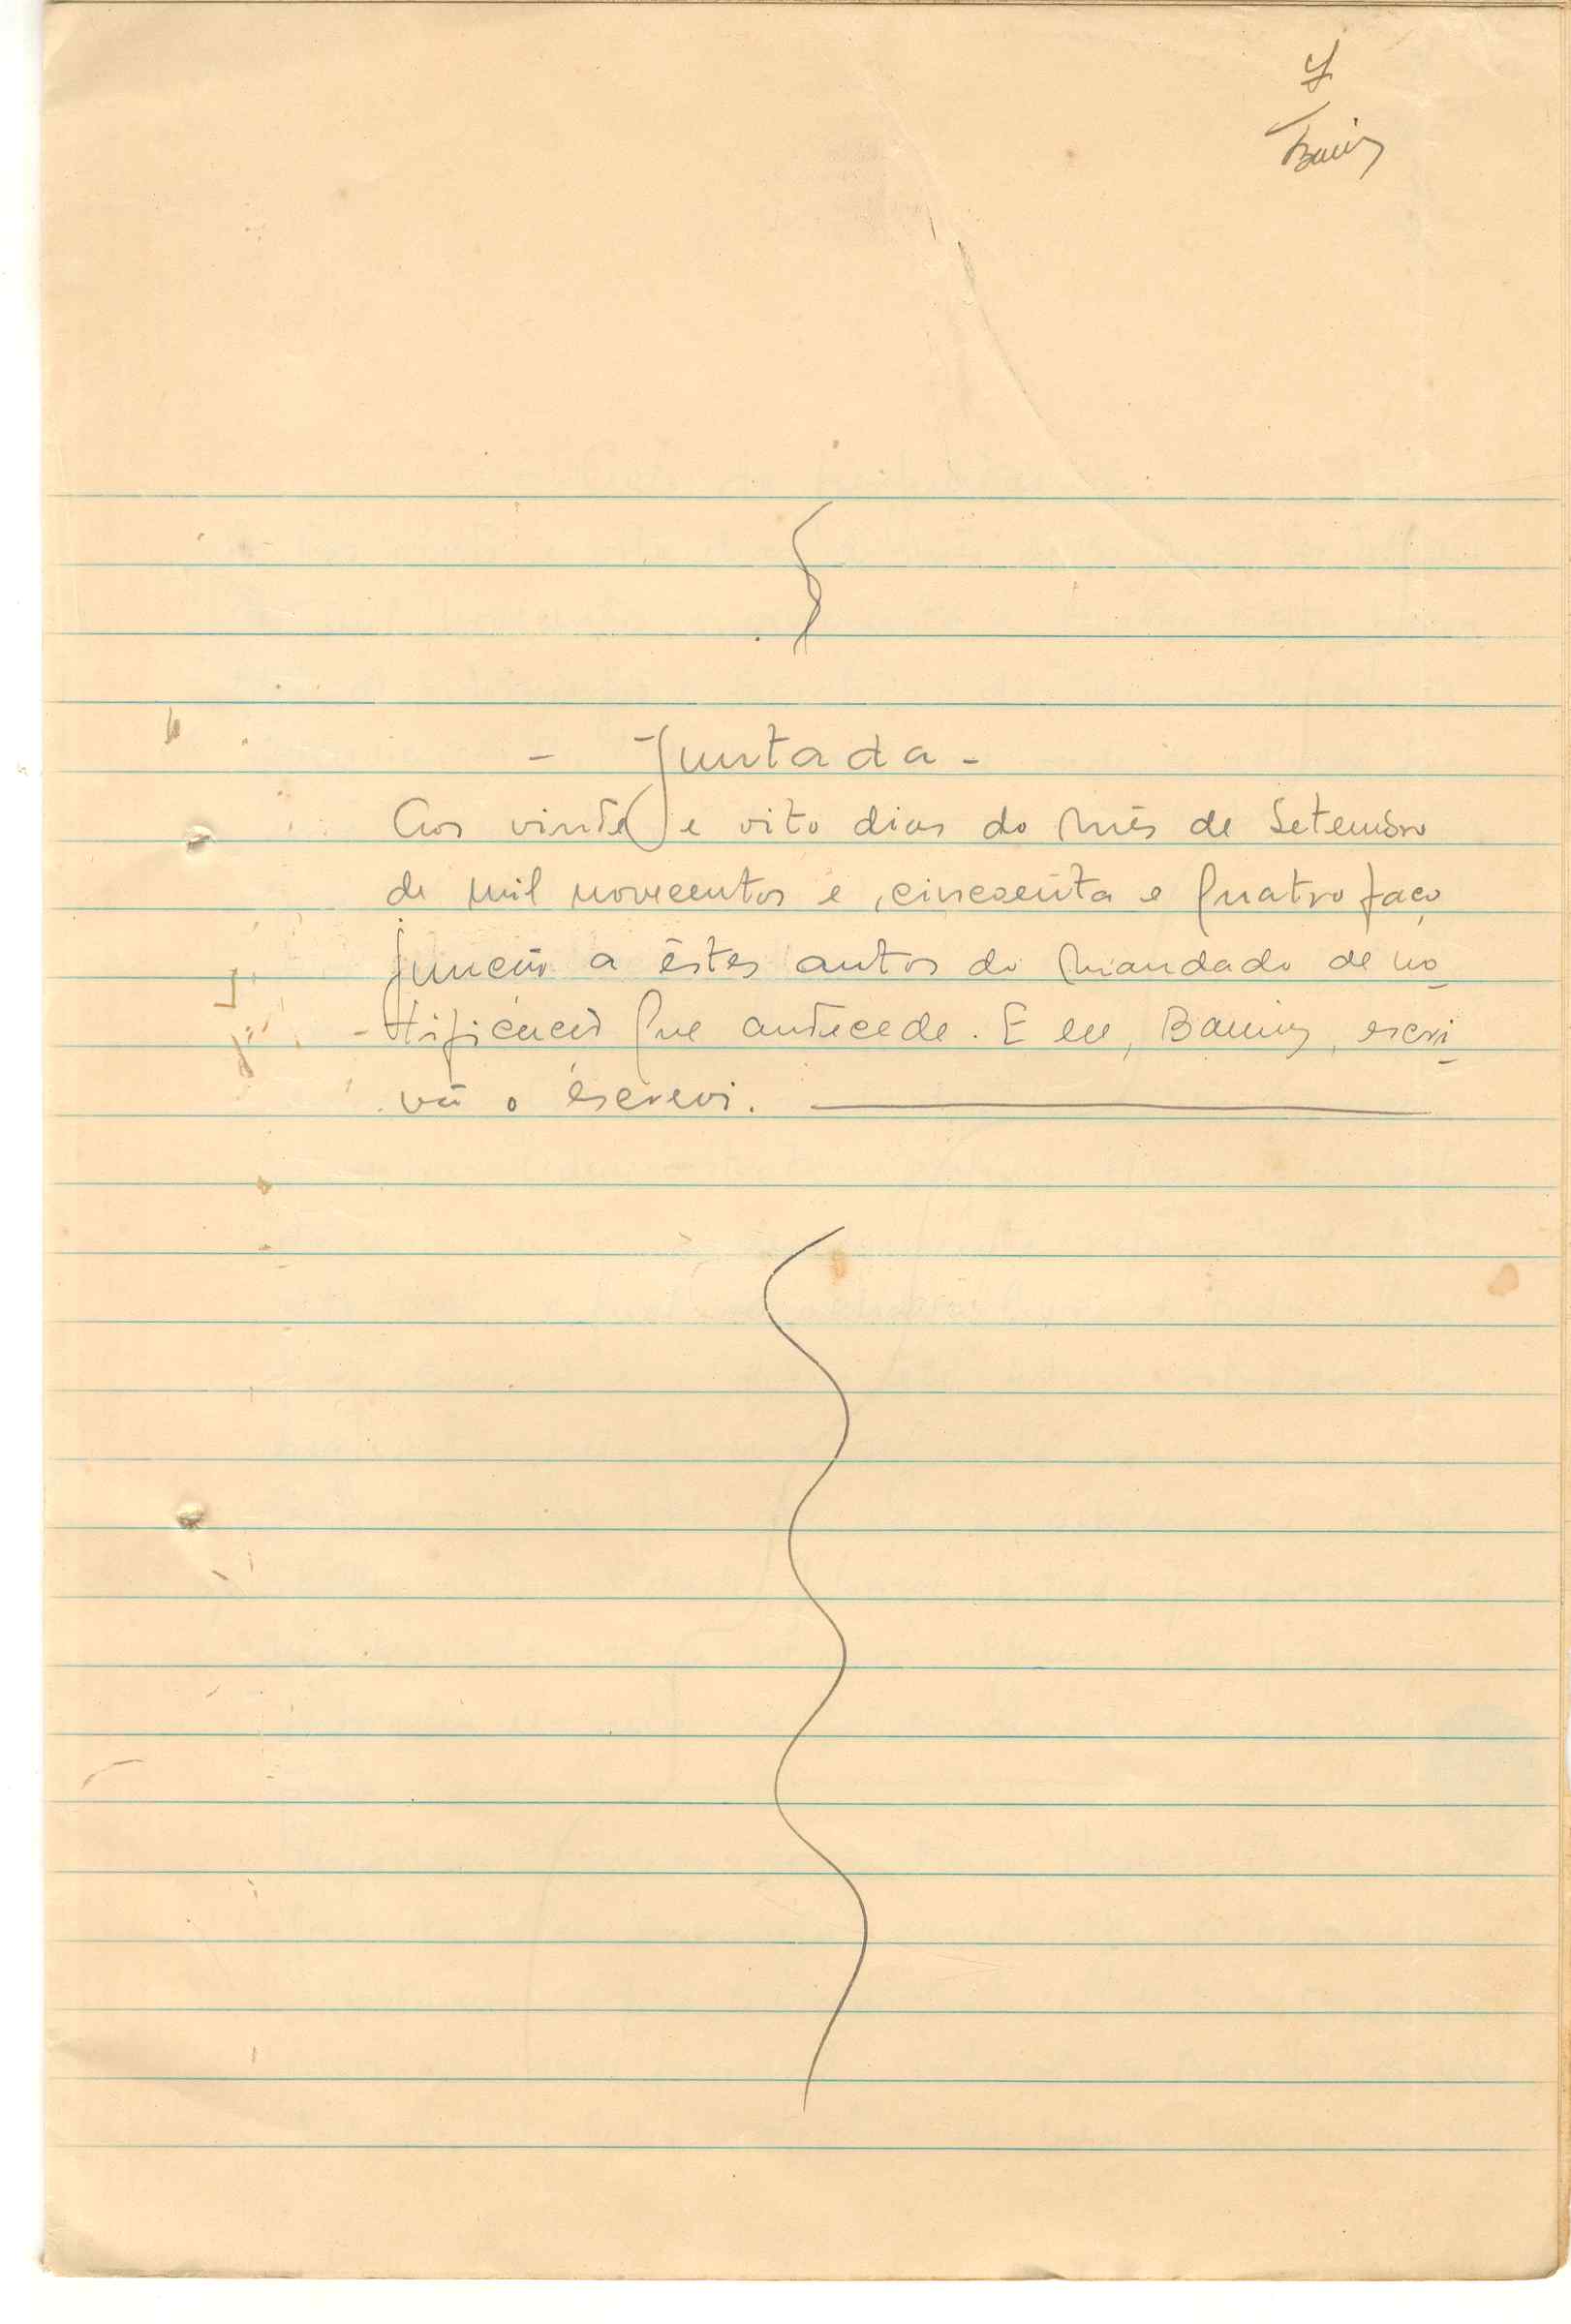 - Juntada -
Aos vinte e oito dias do mês de Setembro
de mil novecentos e cincoenta e quatro faço
junção a êstes autos do mandado de no-
tificação que antecede. E eu, , escri-
vão o escrevi.